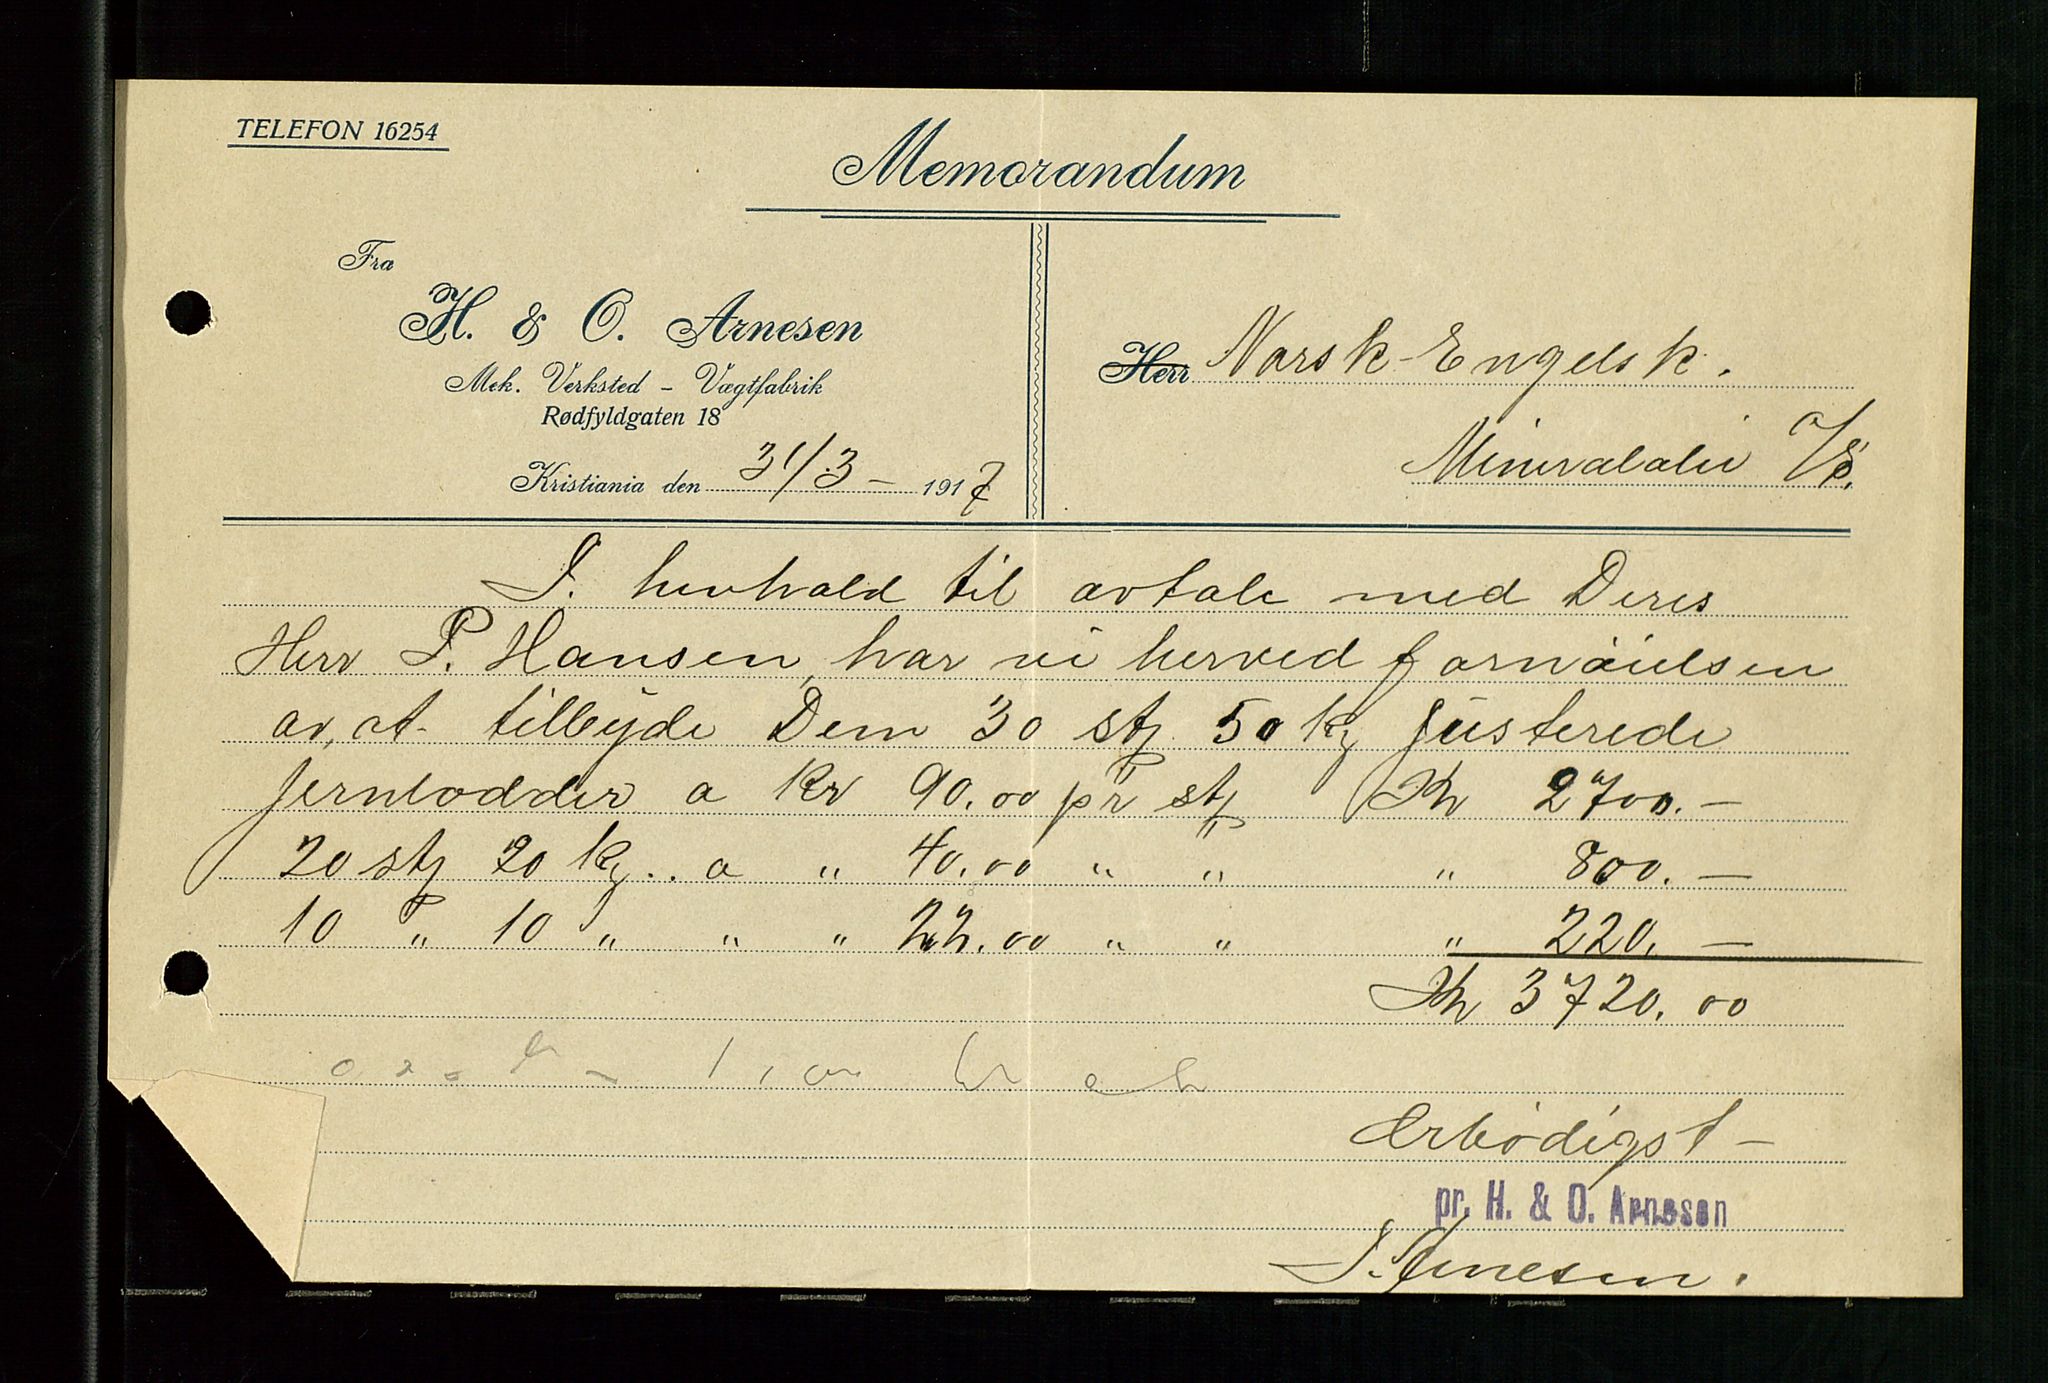 TELEFON 16254
Memorandum
Fra
H. & O. Arnesen
Mek. Verksted - Vægtfabrik
Rødfyldgaten 18
Kristiania den 31/3 - 1917
Herr Norsk-Engelsk.
Mineralolie A/S.
I henhold til avtale med Deres
Herr P. Hansen, har vi herved fornöielsen
av, at tilbyde Dem 30 stj 50 kg justerede
jernlodder a Kr 90.00 pr stj Kr 2700.—
20 stj 20 kg.. a " 40.00 " " " 800.—
10 " 10 " " " 22.00 " " " 220.—
Kr 3720.00
Ærbödigst —
pr. H. & O. Arnesen
Arnesen.